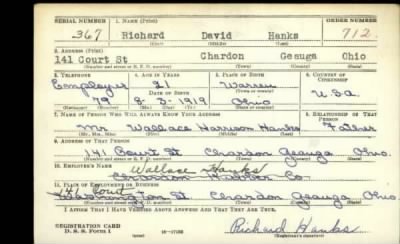 SERIAL NUMBER 1. NAME (Print) ORDER NUMBER
367 Richard David Hanks 712
(First) (Middle) (Last)
2. ADDRESS (Print)
141 Court St Chardon Geauga Ohio
(Number and street or R. F. D. number) (Town) (County) (State)
3. TELEPHONE 4. AGE IN YEARS 5. PLACE OF BIRTH 6. COUNTRY OF CITIZENSHIP
Employer 21 Warren
DATE OF BIRTH (Town or county) U.S.a
79 8-3-1919 Ohio
7. NAME OF PERSON WHO WILL ALWAYS KNOW YOUR ADDRESS 8. RELATIONSHIP OF THAT PERSON
Mr Wallace Harrison Hanks Father
(Mr., Mrs., Miss) (First) (Middle) (Last)
9. ADDRESS OF THAT PERSON
141 Court St Chardon Geauga Ohio.
(Number and street or R. F. D. number) (Town) (County) (State)
10. EMPLOYER'S NAME
Wallace Hanks
Chardon Co
11. PLACE OF EMPLOYMENT OR BUSINESS
141 Court
Washington St Chardon Geauga Ohio
(Number and street or R. F. D. number) (Town) (County) (State)
I AFFIRM THAT I HAVE VERIFIED ABOVE ANSWERS AND THAT THEY ARE TRUE.
REGISTRATION CARD
D. S. S. Form 1 16-17105 Richard Hanks
(Registrant's signature)